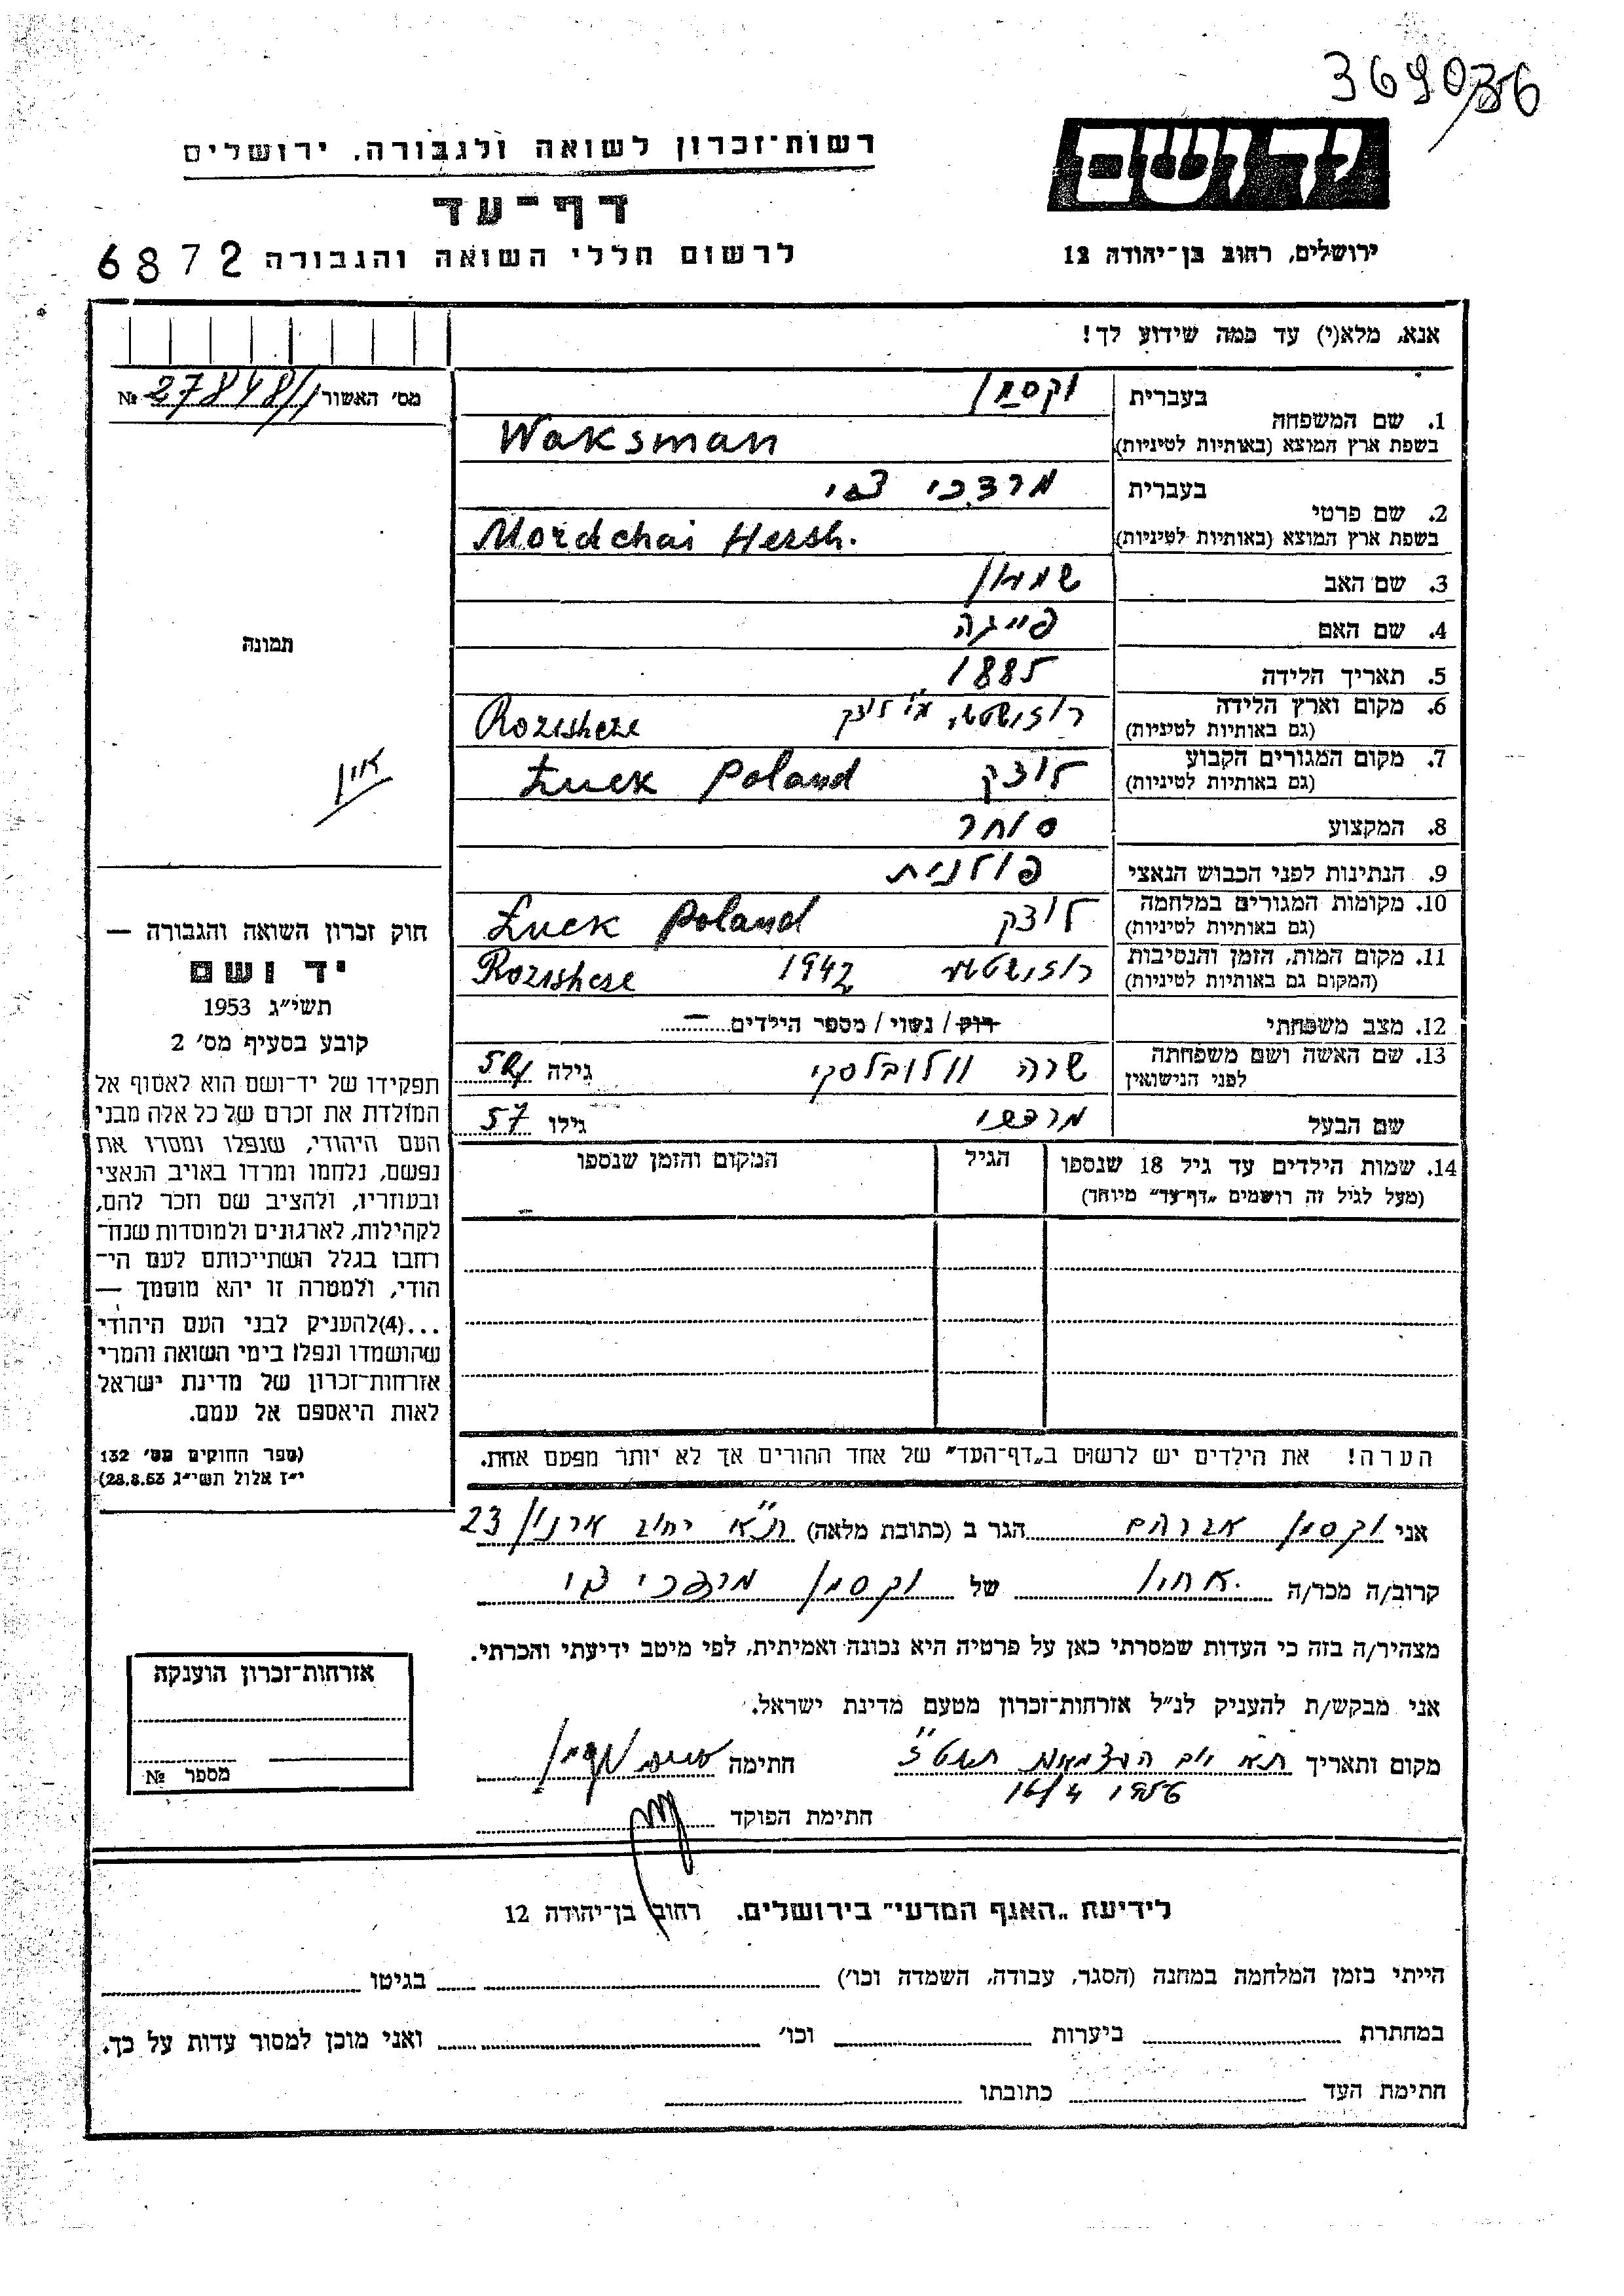 369036
רשות־זכרון לשואה ולגבורה, ירושלים
יד ושם
דף־עד
לרשום חללי השואה והגבורה 6872
ירושלים, רחוב בן־יהודה 12
אנא, מלא(י) עד כמה שידוע לך!
מס' האשור 27848/1 №
1. שם המשפחה
בעברית וקסמן
בשפת ארץ המוצא (באותיות לטיניות) Waksman
2. שם פרטי
בעברית מרדכי צבי
בשפת ארץ המוצא (באותיות לטיניות) Mordchai Hersh.
3. שם האב שמעון
4. שם האם פייגה
5. תאריך הלידה 1885
6. מקום וארץ הלידה רוז'ישטש, ע"י לוצק Rozishcze
(גם באותיות לטיניות)
7. מקום המגורים הקבוע לוצק Łuck Poland
(גם באותיות לטיניות)
8. המקצוע סוחר
9. הנתינות לפני הכבוש הנאצי פולנית
10. מקומות המגורים במלחמה לוצק Łuck Poland
(גם באותיות לטיניות)
11. מקום המות, הזמן והנסיבות רוז'ישטש 1942 Rozishcze
(המקום גם באותיות לטיניות)
12. מצב משפחתי רוק / נשוי / מספר הילדים –
13. שם האשה ושם משפחתה שרה גילה
לפני הנישואין
שם הבעל מרדכי גילו 57
14. שמות הילדים עד גיל 18 שנספו הגיל המקום והזמן שנספו
(מעל לגיל זה רושמים „דף־עד" מיוחד)
–
הערה! את הילדים יש לרשום ב„דף־העד" של אחד ההורים אך לא יותר מפעם אחת.
תמונה
אין
חוק זכרון השואה והגבורה —
יד ושם
תשי"ג 1953
קובע בסעיף מס' 2
תפקידו של יד־ושם הוא לאסוף אל
המולדת את זכרם של כל אלה מבני
העם היהודי, שנפלו ומסרו את
נפשם, נלחמו ומרדו באויב הנאצי
ובעוזריו, ולהציב שם וזכר להם,
לקהילות, לארגונים ולמוסדות שנח־
רחבו בגלל השתייכותם לעם הי־
הודי, ולמטרה זו יהא מוסמך —
...(4)להעניק לבני העם היהודי
שהושמדו ונפלו בימי השואה והמרי
אזרחות־זכרון של מדינת ישראל
לאות היאספם אל עמם.
(ספר החוקים מס' 132
י"ז אלול תשי"ג 28.8.53)
אני וקסמן אברהם הגר ב (כתובת מלאה) ת"א רחוב ארנון 23
קרוב/ה מכר/ה אחיו של וקסמן מרדכי צבי
מצהיר/ה בזה כי העדות שמסרתי כאן על פרטיה היא נכונה ואמיתית, לפי מיטב ידיעתי והכרתי.
אני מבקש/ת להעניק לנ"ל אזרחות־זכרון מטעם מדינת ישראל.
מקום ותאריך ת"א יום העצמאות תשט"ז חתימה
16/4 1956
חתימת הפוקד
אזרחות־זכרון הוענקה
מספר №
לידיעת „האגף המדעי" בירושלים. רחוב בן־יהודה 12
הייתי בזמן המלחמה במחנה (הסגר, עבודה, השמדה וכו') בגיטו
במחתרת ביערות וכו' ואני מוכן למסור עדות על כך.
חתימת העד כתובתו